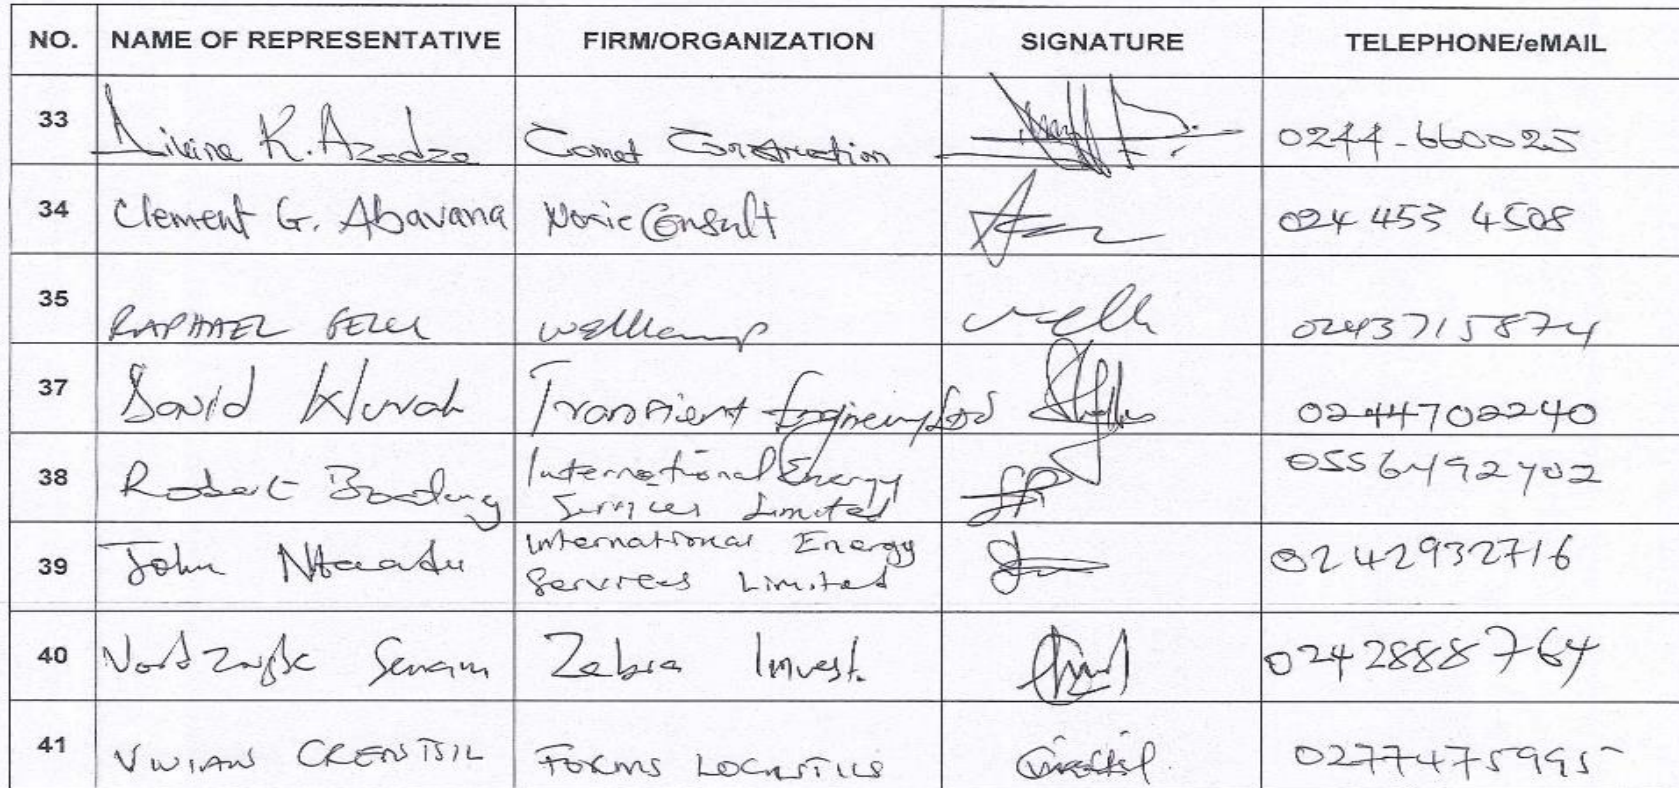 NO. NAME OF REPRESENTATIVE FIRM/ORGANIZATION SIGNATURE TELEPHONE/eMAIL
33 K. Azadze Comet Construction 0244-660025
34 Clement G. Abavana Consult 024 453 4508
35 RAPHAEL wellkamp 0243715874
37 David Klurah Transient Engineering Ltd 0244702240
38 Robert International Energy
Services Limited
39 John International Energy 0242932716
Services Limited
40 Senam Zebra Invest. 0242888764
41 VIVIAN CRENTSIL FORMS LOGISTICS 0277475995